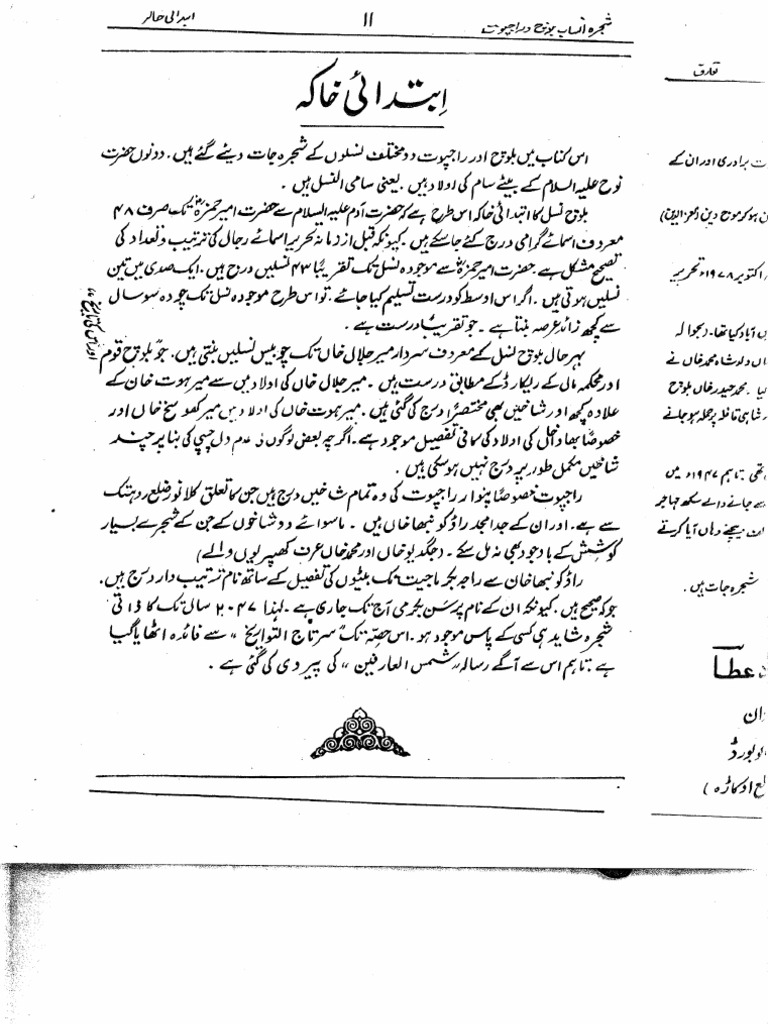 شجرہ انساب بلوچ و راجپوت
۱۱
ابتدائی خاکہ
اِبتدائی خاکہ
اس کتاب میں بلوچ اور راجپوت دو مختلف نسلوں کے شجرہ جات دیئے گئے ہیں۔ دونوں حضرت
نوح علیہ السلام کے بیٹے سام کی اولاد ہیں۔ یعنی سامی النسل ہیں۔
بلوچ نسل کا ابتدائی خاکہ اس طرح ہے کہ حضرت آدم علیہ السلام سے حضرت امیر حمزہؓ تک صرف ۴۸
معروف اسمائے گرامی درج کئے جا سکے ہیں۔ کیونکہ قبل از زمانہ تحریر اسمائے رجال کی ترتیب و تعداد کی
تصحیح مشکل ہے۔ حضرت امیر حمزہؓ سے موجودہ نسل تک تقریباً ۴۳ نسلیں درج ہیں۔ ایک صدی میں تین
نسلیں ہوتی ہیں۔ اگر اس اوسط کو درست تسلیم کیا جائے۔ تو اس طرح موجودہ نسل تک چودہ سو سال
سے کچھ زائد عرصہ بنتا ہے۔ جو تقریباً درست ہے۔
بہرحال بلوچ نسل کے معروف سردار میر جلال خاں تک چوبیس نسلیں بنتی ہیں۔ جو بلوچ قوم
اور اس کی تاریخ
اور محکمہ مال کے ریکارڈ کے مطابق درست ہیں۔ میر جلال خاں کی اولاد میں سے میر ہوت خان کے
علاوہ کچھ اور شاخیں بھی مختصراً درج کی گئی ہیں۔ میر ہوت خاں کی اولاد میں میر کھوسخ خاں اور
خصوصاً بہادل کی اولاد کی کافی تفصیل موجود ہے۔ اگرچہ بعض لوگوں کی عدم دل چسپی کی بنا پر چند
شاخیں مکمل طور پر درج نہیں ہو سکی ہیں۔
راجپوت خصوصاً پنوار راجپوت کی وہ تمام شاخیں درج ہیں جن کا تعلق کلانور ضلع رہتک
سے ہے۔ اور ان کے جد امجد راؤ کونبھا خاں ہیں۔ ماسوائے دو شاخوں کے جن کے شجرے بسیار
کوشش کے باوجود بھی نہ مل سکے۔ (جگدیو خاں اور محمد خاں عرف کھپریوں والے)
راؤ کونبھا خان سے راجہ بکرماجیت تک بیٹوں کی تفصیل کے ساتھ نام ترتیب وار درج ہیں۔
جو کہ صحیح ہیں۔ کیونکہ ان کے نام پر سن بکرمی آج تک جاری ہے۔ لہٰذا ۲۰۴۷ سال تک کا ذاتی
شجرہ شاید ہی کسی کے پاس موجود ہو۔ اس حصہ تک "سرتاج التواریخ" سے فائدہ اٹھایا گیا
ہے۔ تاہم اس سے آگے رسالہ "شمس العارفین" کی پیروی کی گئی ہے۔
تعارف
برادری اور ان کے
ہو کر موج دین (معز الدین)
اکتوبر ۱۹۷۸ء تحریر
آباد کیا تھا۔ بحوالہ
دلوشاہ محمد خاں نے
گیا۔ محمد حیدر خاں بلوچ
شاہی قافلہ پر حملہ ہو جانے
تھی۔ تاہم ۱۹۴۷ء میں
جانے والے سکھ مہاجر
دیکھنے وہاں آیا کرتے
شجرہ جات ہیں۔
عطا
اوکاڑہ)